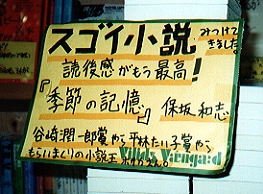 みつけて
きました。
スゴイ小説
読後感がもう最高!
『季節の記憶』 保坂和志
谷崎潤一郎賞やら平林たい子賞やら
もらいまくりの小説王
Village Vanguard